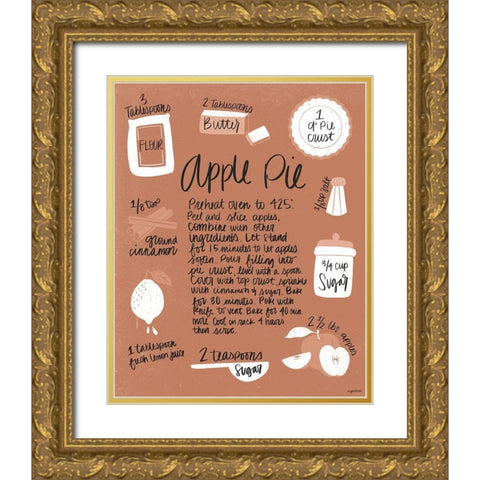 3
Tablespoons
FLOUR
2 Tablespoons
Butter
1
9" Pie
crust
Apple Pie
1/8 tsp
ground
cinnamon
Preheat oven to 425°.
Peel and slice apples,
combine with other
ingredients. Let stand
for 15 minutes to let apples
soften. Pour filling into
pie crust, level with a spoon.
Cover with top crust, sprinkle
with cinnamon & sugar. Bake
for 30 minutes. Poke with
knife to vent. Bake for 40 min.
more. Cool on rack 4 hours
then serve.
salt
3/4 cup
Sugar
1 tablespoon
fresh lemon juice
2 teaspoons
Sugar
2 1/2 lbs apples